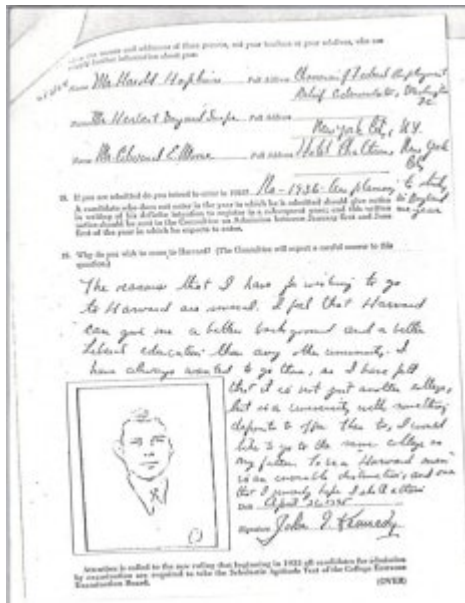 names and addresses of three persons, not your teachers or your relatives, who can
supply further information about you.
Name Mr. Harold Hopkins Full Address Chairman of Federal Employment
Relief Washington
DC
Name Mr. Herbert Bayard Swope Full Address
New York City, N.Y.
Name Mr. Edward E. Moore Full Address Hotel Chatham New York
City
18. If you are admitted do you intend to enter in 1935? No - 1936 - Am planning to study
in England
one year
A candidate who does not enter in the year in which he is admitted should give notice
in writing of his definite intention to register in a subsequent year; and this written
notice should be sent to the Committee on Admission between January first and June
first of the year in which he expects to enter.
19. Why do you wish to come to Harvard? (The Committee will expect a careful answer to this
question.)
The reasons that I have for wishing to go
to Harvard are several. I feel that Harvard
can give me a better background and a better
liberal education than any other university. I
have always wanted to go there, as I have felt
that it is not just another college,
but is a university with something
definite to offer. Then too, I would
like to go to the same college as
my father. To be a Harvard man
is an enviable distinction, and one
that I sincerely hope I shall attain.
Date April 1935
Signature John F. Kennedy
Attention is called to the new ruling that beginning in 1935 all candidates for admission
by examination are required to take the Scholastic Aptitude Test of the College Entrance
Examination Board.
(OVER)